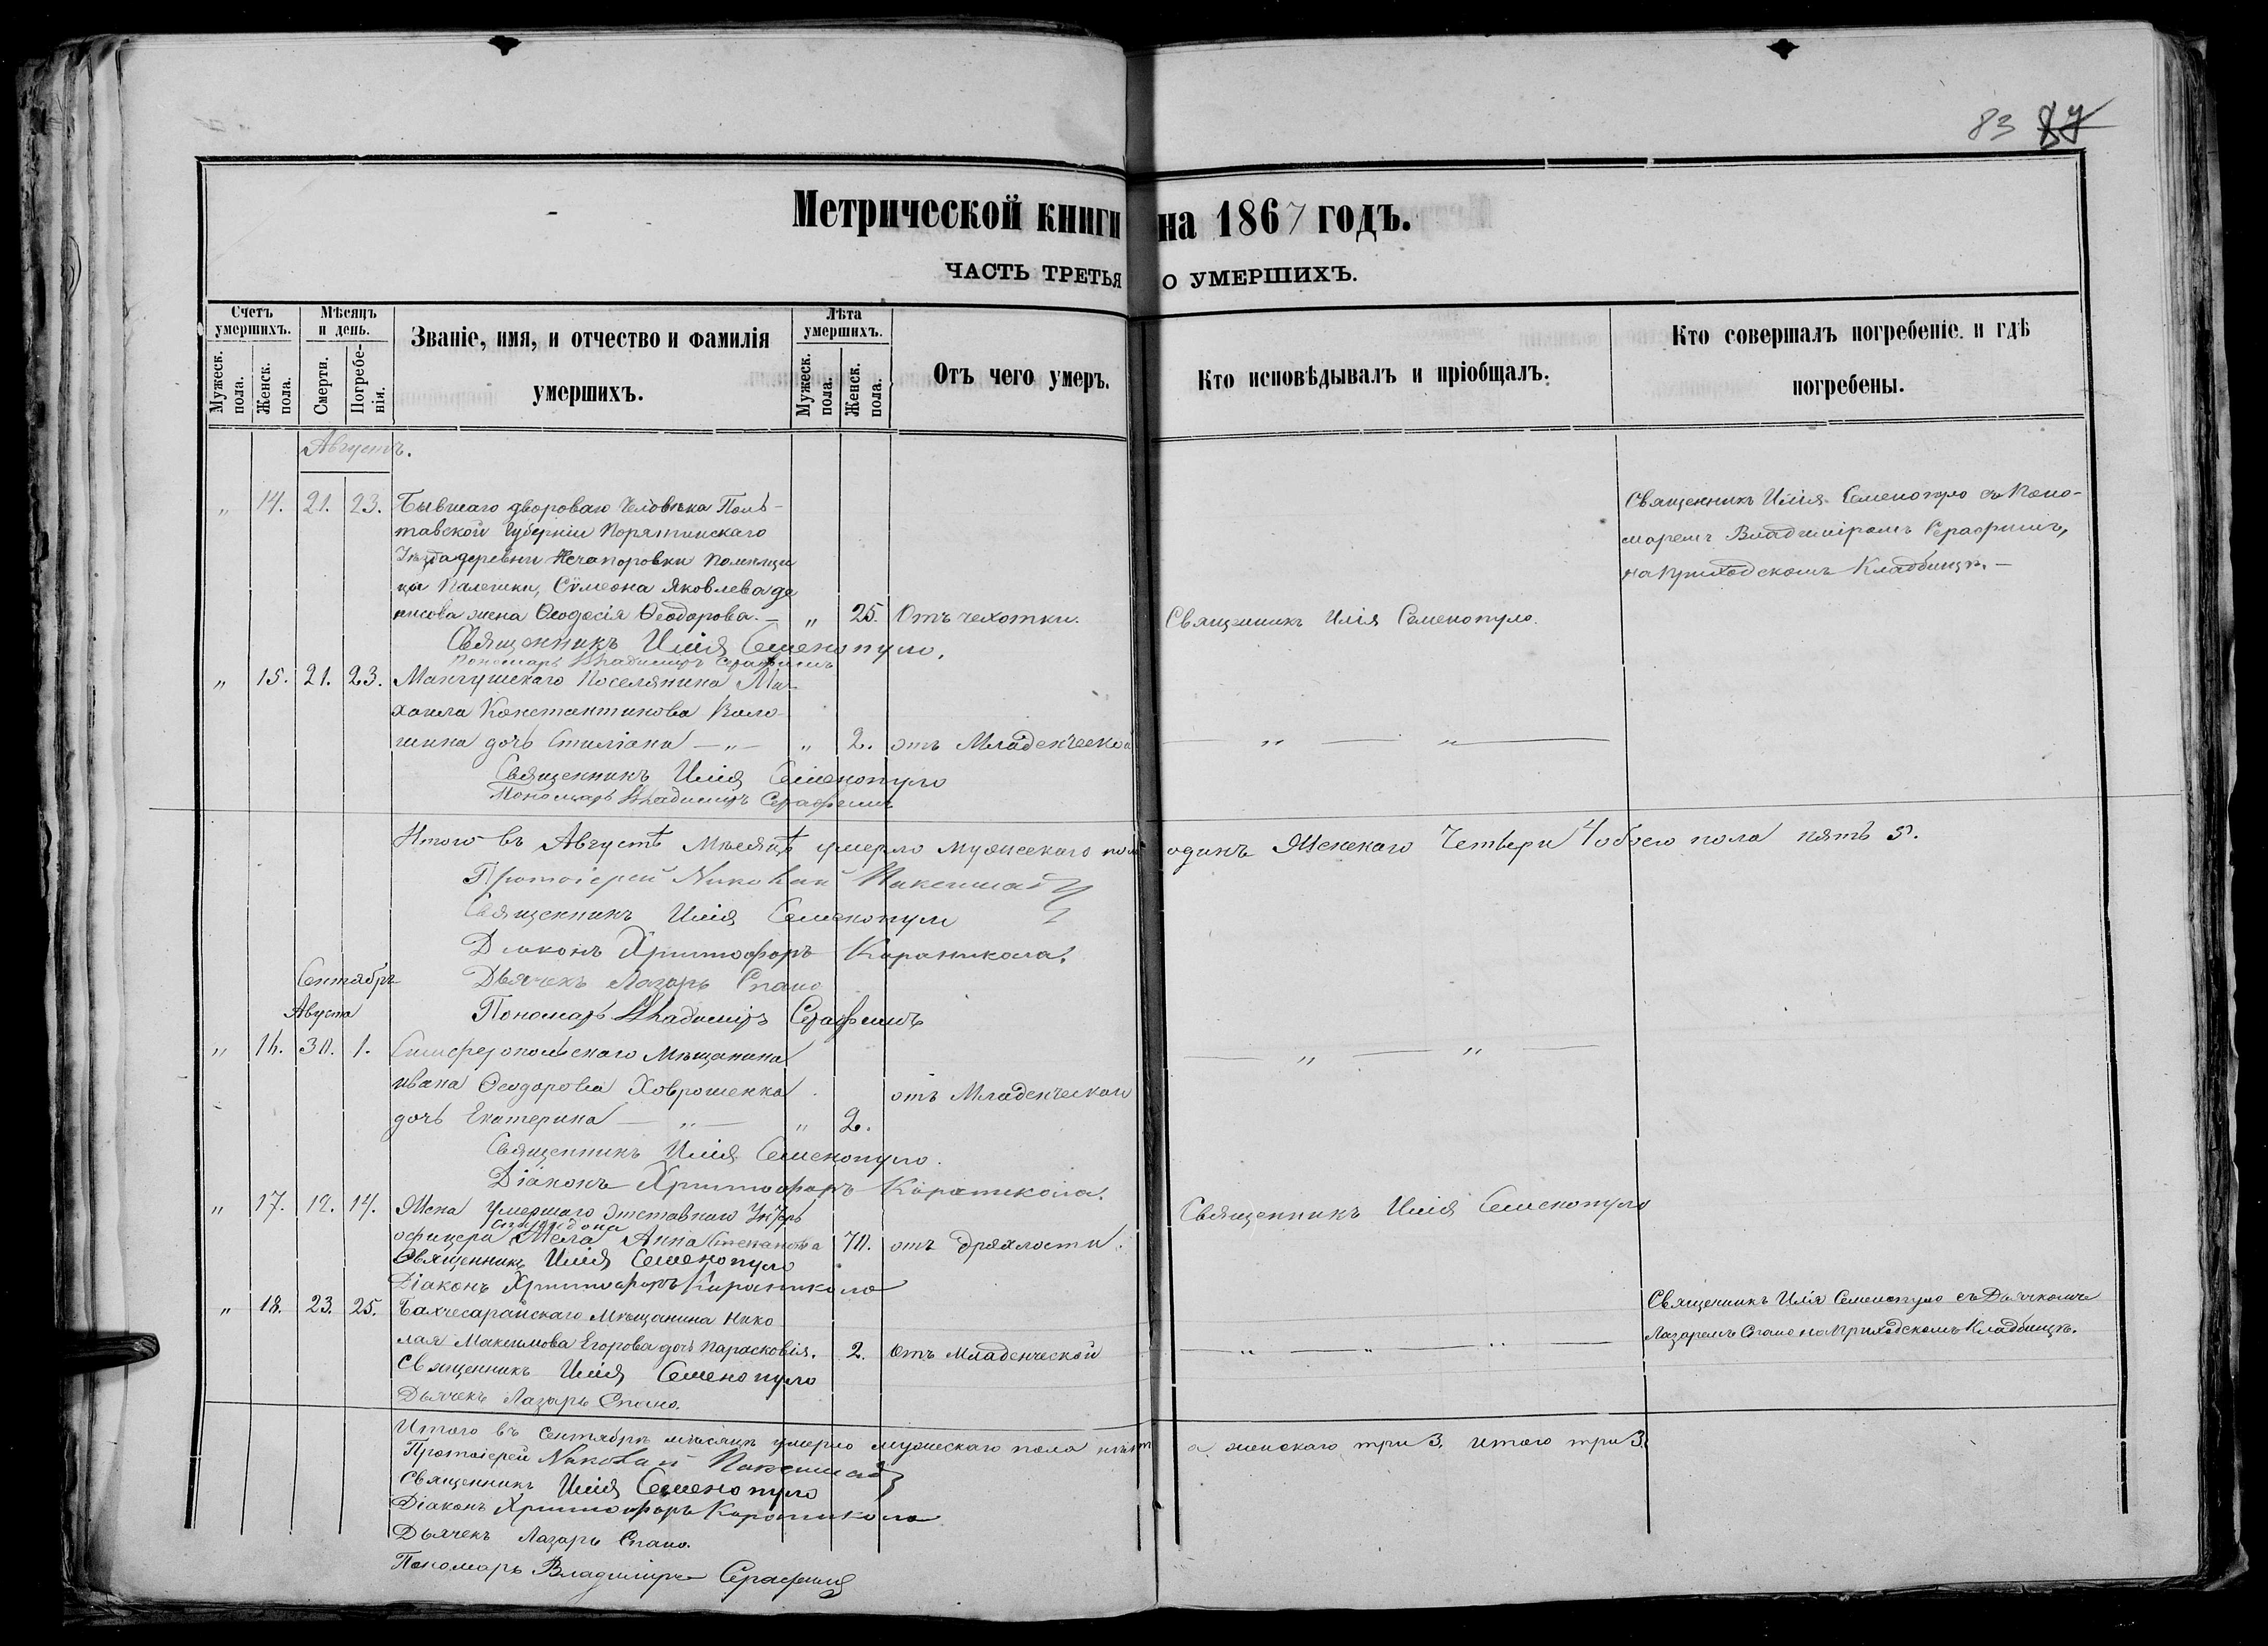 83 87
Метрической книги на 1867 годъ.
ЧАСТЬ ТРЕТЬЯ О УМЕРШИХЪ.
Счетъ умершихъ.
Мужеск. пола.
Женск. пола.
Мѣсяцъ и день.
Смерти.
Погребе-нія.
Званіе, имя, и отчество и фамилія
умершихъ.
Лѣта умершихъ.
Мужеск. пола.
Женск. пола.
Отъ чего умеръ.
Кто исповѣдывалъ и пріобщалъ.
Кто совершалъ погребеніе. и гдѣ
погребены.
Августъ.
„ 14. 21. 23. Бывшаго двороваго Человѣка Пол-
тавской Губерніи
деревни помѣщи
цы Симеона Яковлева де
нисова жена Ѳеодосія Ѳеодорова. — „ 25. Отъ чехотки. Священникъ Илія Семенопуло.
Священникъ Илія Семенопуло съ Поно-
маремъ Владиміромъ Серафимъ,
на приходскомъ Кладбищѣ. —
Священникъ Илія Семенопуло.
Пономарь Владимиръ Серафимъ
„ 15. 21. 23. Мангушскаго Поселянина Ми-
хаила Константинова
дочь Стиліана — „ — „ 2. отъ Младенческой — „ — „ —
Священникъ Илія Семенопуло
Пономарь Владимиръ Серафимъ
Итого въ Августѣ Мѣсяцѣ умерло мужескаго пола одинъ Женскаго Четвери 4 обоего пола пять 5.
Протоіерей Николай
Священникъ Илія Семенопуло
Діаконъ Христофоръ Караникола.
Дьячекъ Лазарь Спано
Пономарь Владимиръ Серафимъ
Сентябрь
Августа
„ 16. 30. 1. Симферопольскаго Мѣщанина — „ — „ —
ивана Ѳеодорова Ховрошенка отъ Младенческой
дочь Екатерина — „ — „ 2.
Священникъ Илія Семенопуло.
Діаконъ Христофоръ Караникола.
„ 17. 12. 14. Жена Умершаго Отставнаго Унтеръ Священникъ Илія Семенопуло
Спиридона
офицера Мела Анна Степанова 70. отъ дряхлости.
Священникъ Илія Семенопуло
Діаконъ Христофоръ Караникола
„ 18. 23. 25. Бахчесарайскаго Мѣщанина Нико
лая Максимова Егорова дочь Парасковія. 2. Отъ Младенческой — „ — „ — „ —
Священникъ Илія Семенопуло съ Дьячкомъ
Лазаремъ Спано на Приходскомъ Кладбищѣ.
Священникъ Илія Семенопуло
Дьячекъ Лазарь Спано.
Итого въ Сентябрѣ мѣсяцѣ умерло мужескаго пола нѣтъ а женскаго три 3. итого три 3.
Протоіерей Николай
Священникъ Илія Семенопуло
Діаконъ Христофоръ Караникола
Дьячекъ Лазарь Спано.
Пономарь Владиміръ Серафимъ